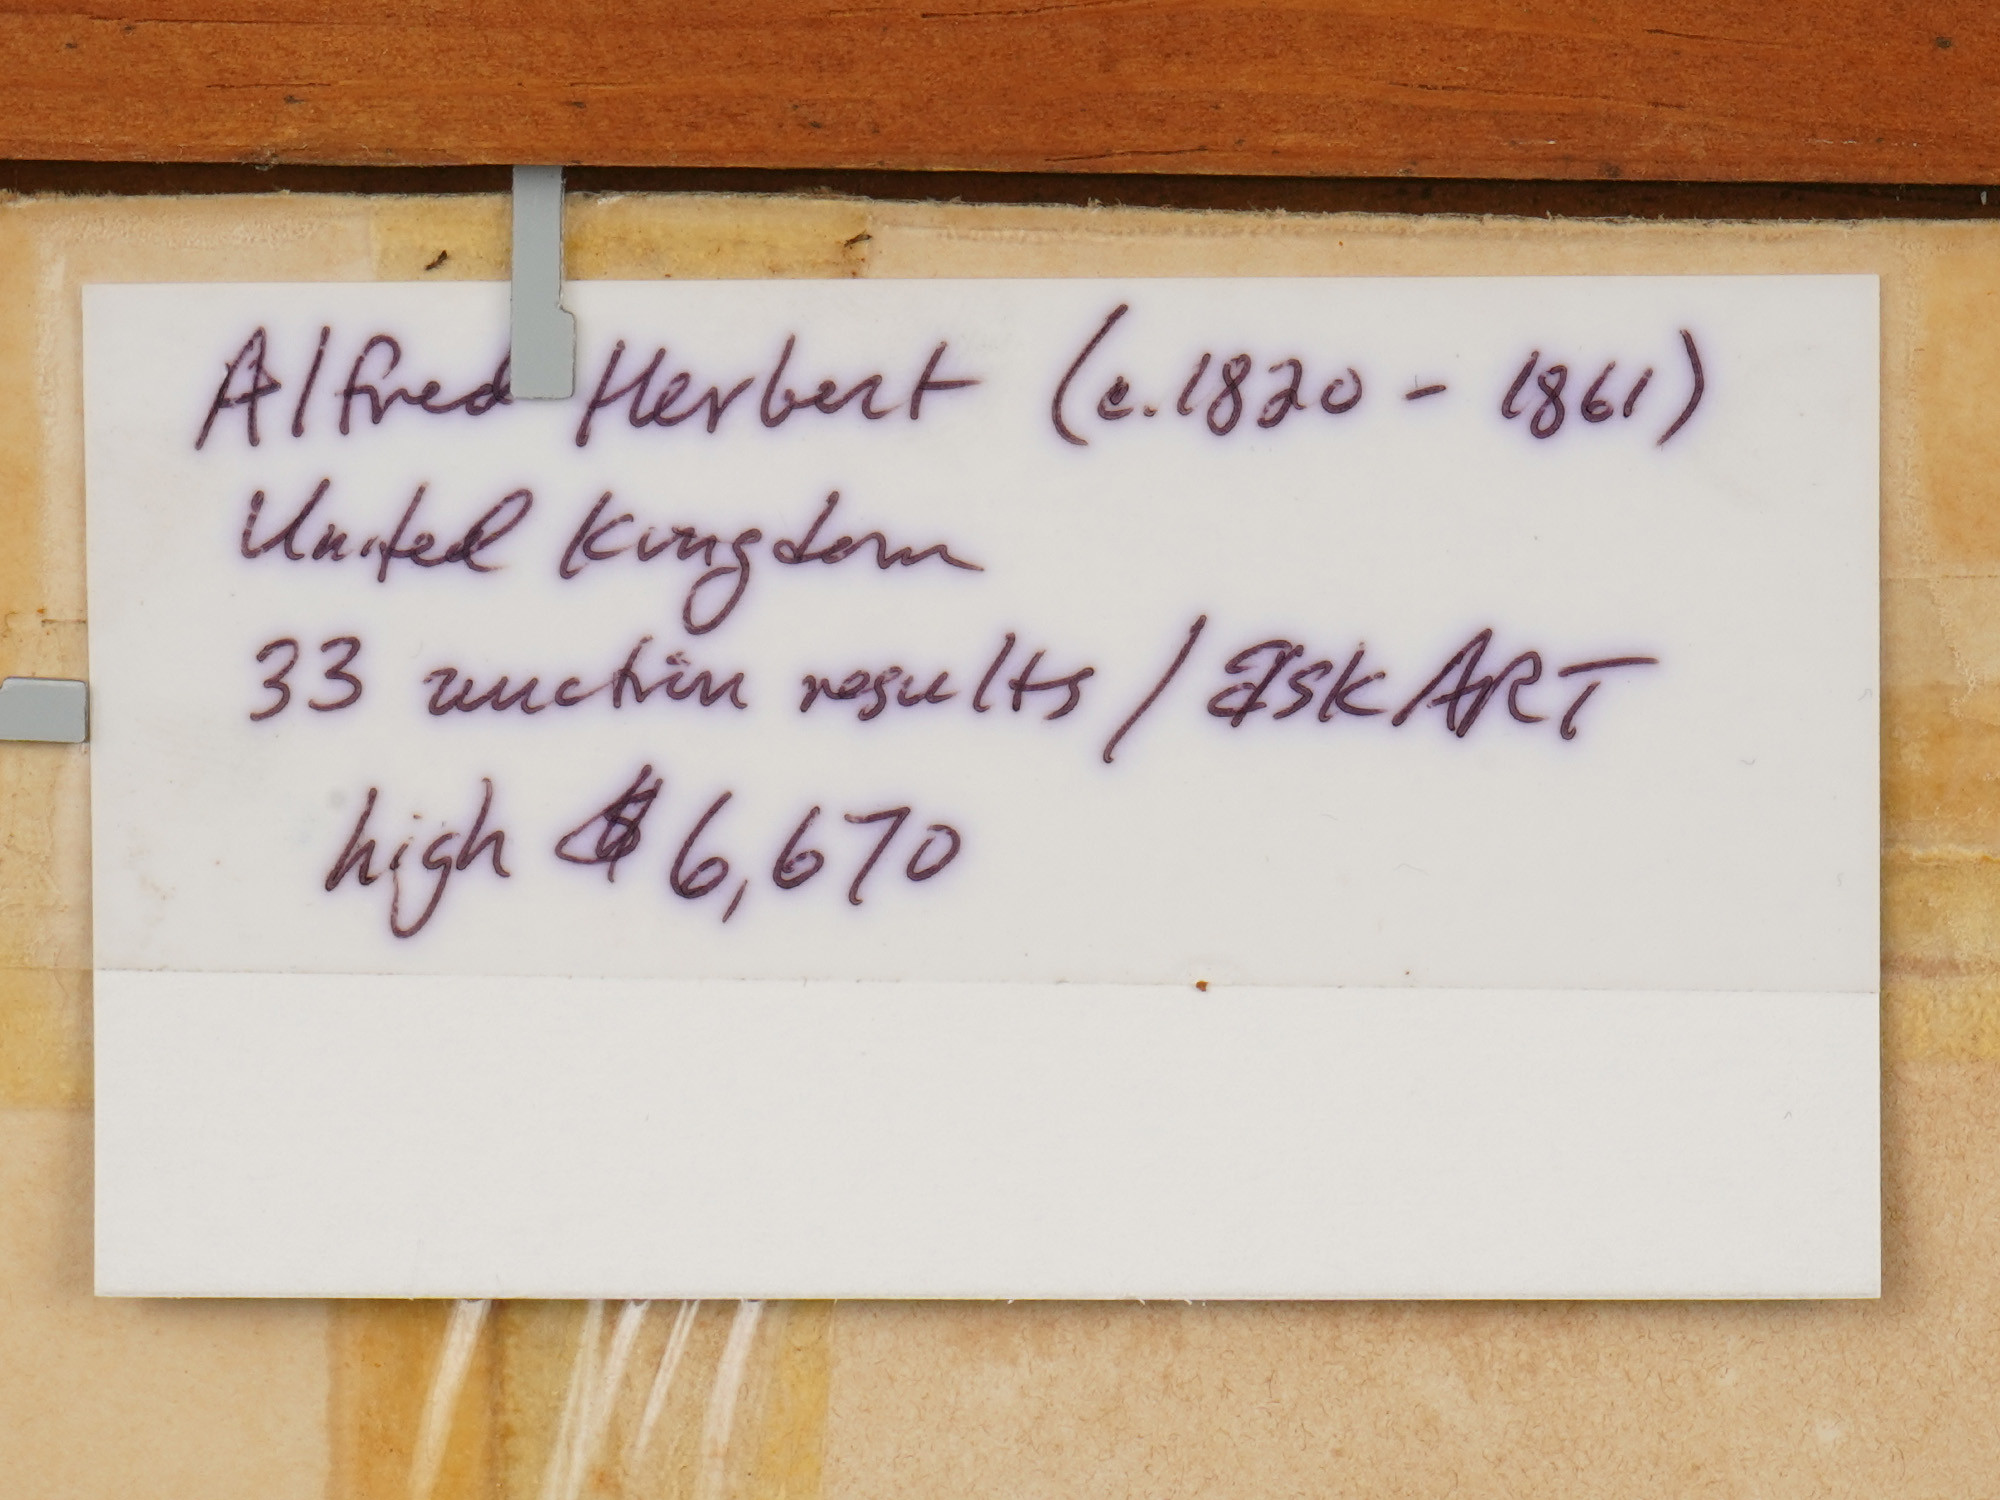 Alfred Herbert (c.1820 - 1861)
United Kingdom
33 auction results / askART
high $6,670